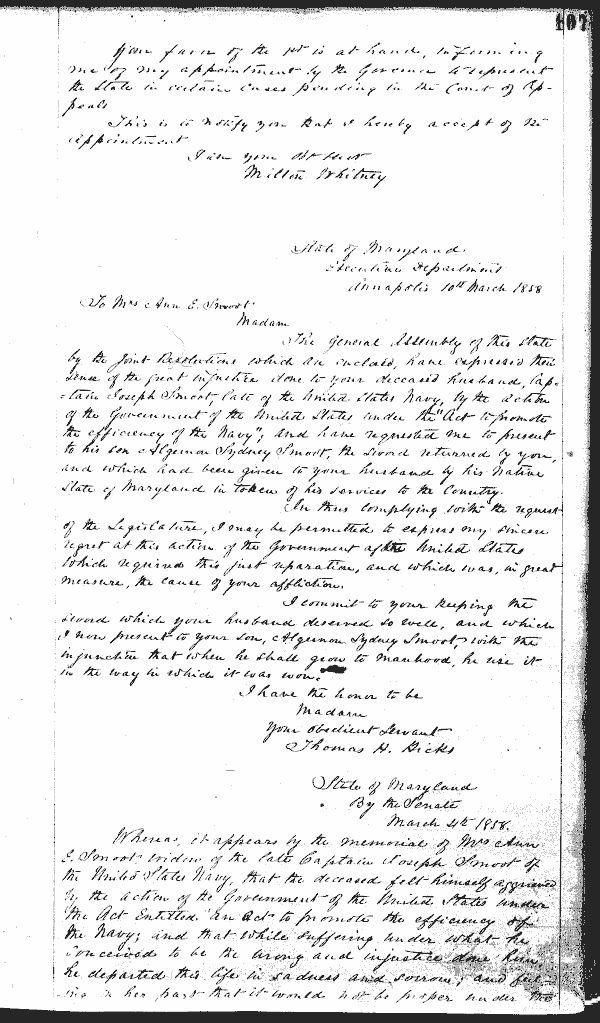 107
Your favor of the 1st is at hand, informing
me of my appointment by the Governor to represent
the State in certain cases pending in the Court of Ap-
peals
This is to notify you that I hereby accept of the
appointment
I am your Obt Servt
Milton Whitney
State of Maryland
Executive Department
Annapolis 10th March 1858
To Mrs Ann E. Smoot
Madam
The General Assembly of this State
by the Joint Resolutions which are enclosed, have expressed their
sense of the great injustice done to your deceased husband, Cap-
=tain Joseph Smoot, late of the United States Navy, by the action
of the Government of the United States under the "Act to promote
the efficiency of the Navy"; and have requested me to present
to his son Algernon Sydney Smoot, the sword returned by you,
and which had been given to your husband by his Native
State of Maryland in token of his services to the Country.
In thus complying with the request
of the Legislature, I may be permitted to express my sincere
regret at this action of the Government of the United States
which required this just reparation, and which was, in great
measure, the cause of your affliction.
I commit to your keeping the
sword which your husband deserved so well, and which
I now present to your son, Algernon Sydney Smoot, with the
injunction that when he shall grow to manhood, he use it
in the way in which it was won.
I have the honor to be
Madam
Your obedient Servant
Thomas H. Hicks
State of Maryland
By the Senate
March 4th 1858.
Whereas, it appears by the memorial of Mrs Ann
E. Smoot widow of the late Captain Joseph Smoot of
the United States Navy, that the deceased felt himself aggrieved
by the action of the Government of the United States under
the Act Entitled "an Act to promote the efficiency of
the Navy; and that while suffering under what he
conceived to be the wrong and injustice done him,
he departed this life in sadness and sorrow; and feel-
ing in her part that it would not be proper under the